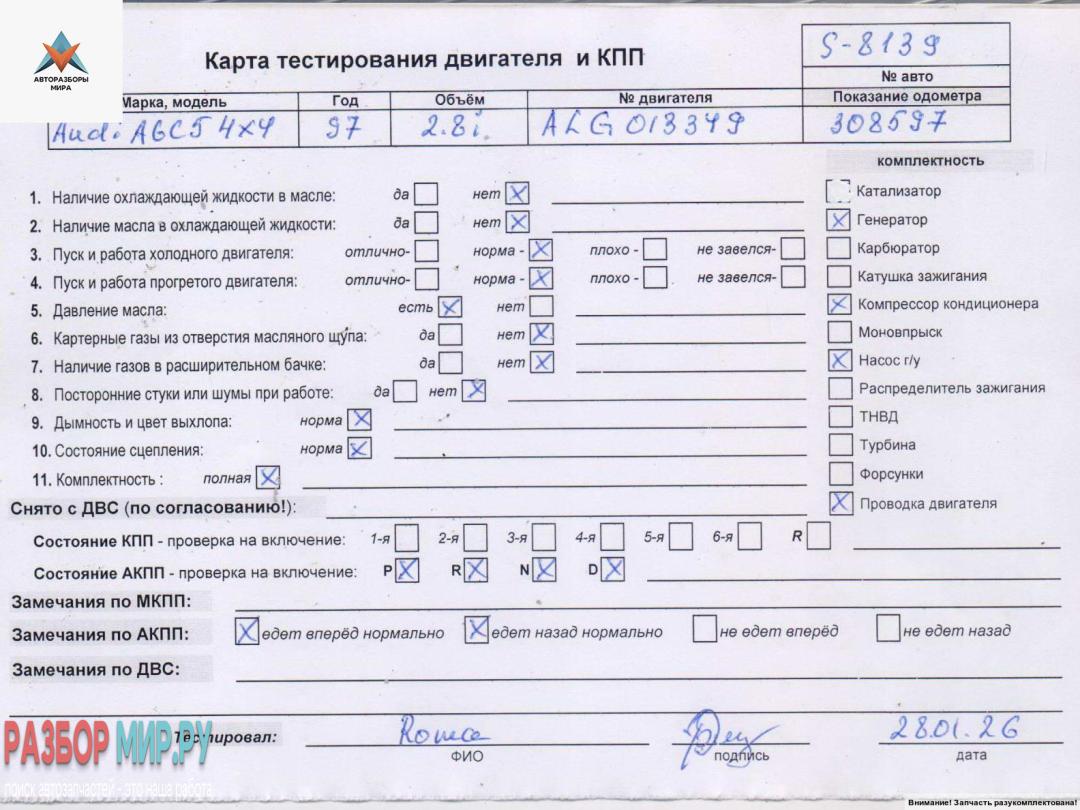 АВТОРАЗБОРЫ
МИРА
Карта тестирования двигателя и КПП
S-8139
№ авто
Марка, модель Год Объём № двигателя Показание одометра
Audi A6C5 4x4 97 2.8i ALG 013349 308597
комплектность
1. Наличие охлаждающей жидкости в масле: да нет X
Катализатор
2. Наличие масла в охлаждающей жидкости: да нет X
X Генератор
3. Пуск и работа холодного двигателя: отлично- норма - X плохо - не завелся-
Карбюратор
4. Пуск и работа прогретого двигателя: отлично- норма - X плохо - не завелся-
Катушка зажигания
5. Давление масла: есть X нет
X Компрессор кондиционера
6. Картерные газы из отверстия масляного щупа: да нет X
Моновпрыск
7. Наличие газов в расширительном бачке: да нет X
X Насос г/у
8. Посторонние стуки или шумы при работе: да нет X
Распределитель зажигания
9. Дымность и цвет выхлопа: норма X
ТНВД
10. Состояние сцепления: норма X
Турбина
11. Комплектность : полная X
Форсунки
Снято с ДВС (по согласованию!):
X Проводка двигателя
Состояние КПП - проверка на включение: 1-я 2-я 3-я 4-я 5-я 6-я R
Состояние АКПП - проверка на включение: P X R X N X D X
Замечания по МКПП:
Замечания по АКПП: X едет вперёд нормально X едет назад нормально не едет вперёд не едет назад
Замечания по ДВС:
Тестировал: Рома 28.01.26
ФИО подпись дата
РАЗБОР МИР.РУ
поиск автозапчастей - это наша работа
Внимание! Запчасть разукомплектована!